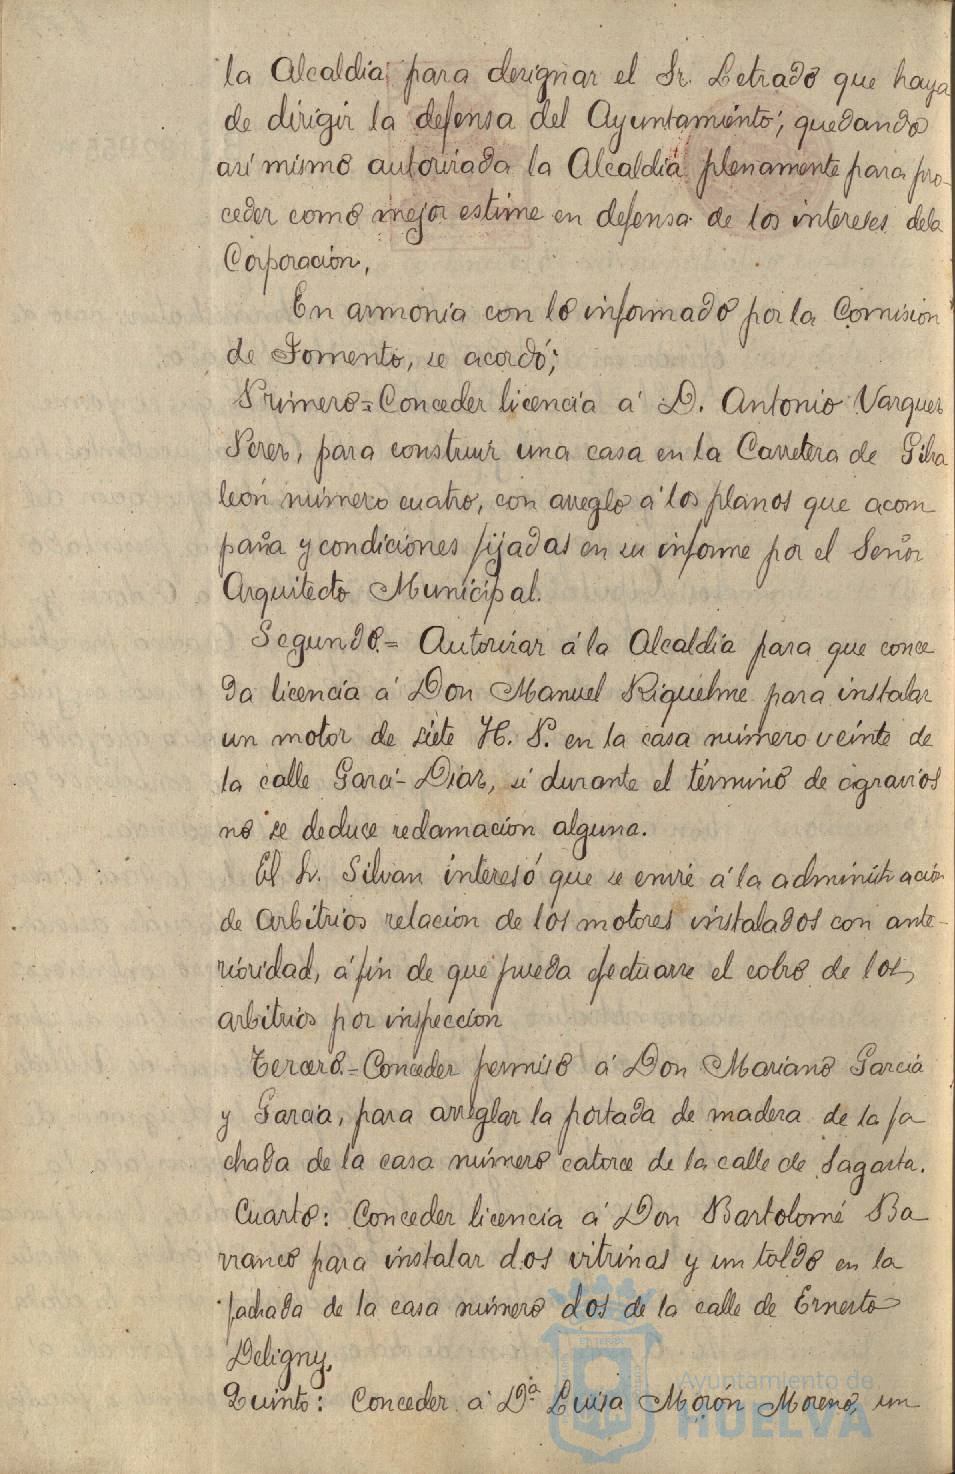 la Alcaldía, para designar el Sr. Letrado que haya
de dirigir la defensa del Ayuntamiento; quedando
así mismo autorizada la Alcaldía plenamente para pro-
ceder como mejor estime en defensa de los intereses dela
Corporación,
En armonía con lo informado por la Comisión
de Fomento, se acordó;
Primero = Conceder licencia á D. Antonio Vazquez
Perez, para construir una casa en la Carretera de Gibra
león número cuatro, con arreglo á los planos que acom
paña y condiciones fijadas en su informe por el Señor
Arquitecto Municipal.
Segundo.= Autorizar á la Alcaldía para que conce
da licencia á Don Manuel Riquelme para instalar
un motor de siete H. P. en la casa número veinte de
la calle Garci-Diaz, si durante el término de agravios
no se deduce reclamación alguna.
El Sr. Silvan interesó que se envie á la administración
de arbitrios relación de los motores instalados con ante-
rioridad, á fin de que pueda efectuarse el cobro de los,
arbitrios por inspección
Tercero.= Conceder permiso á Don Mariano García
y García, para arreglar la portada de madera de la fa
chada de la casa número catorce de la calle de Sagasta.
Cuarto: Conceder licencia á Don Bartolomé Ba
rranco para instalar dos vitrinas y un toldo en la
fachada de la casa número dos de la calle de Ernesto
Deligny.
Quinto: Conceder á Dª Luisa Morón Moreno, un
Ayuntamiento de
HUELVA